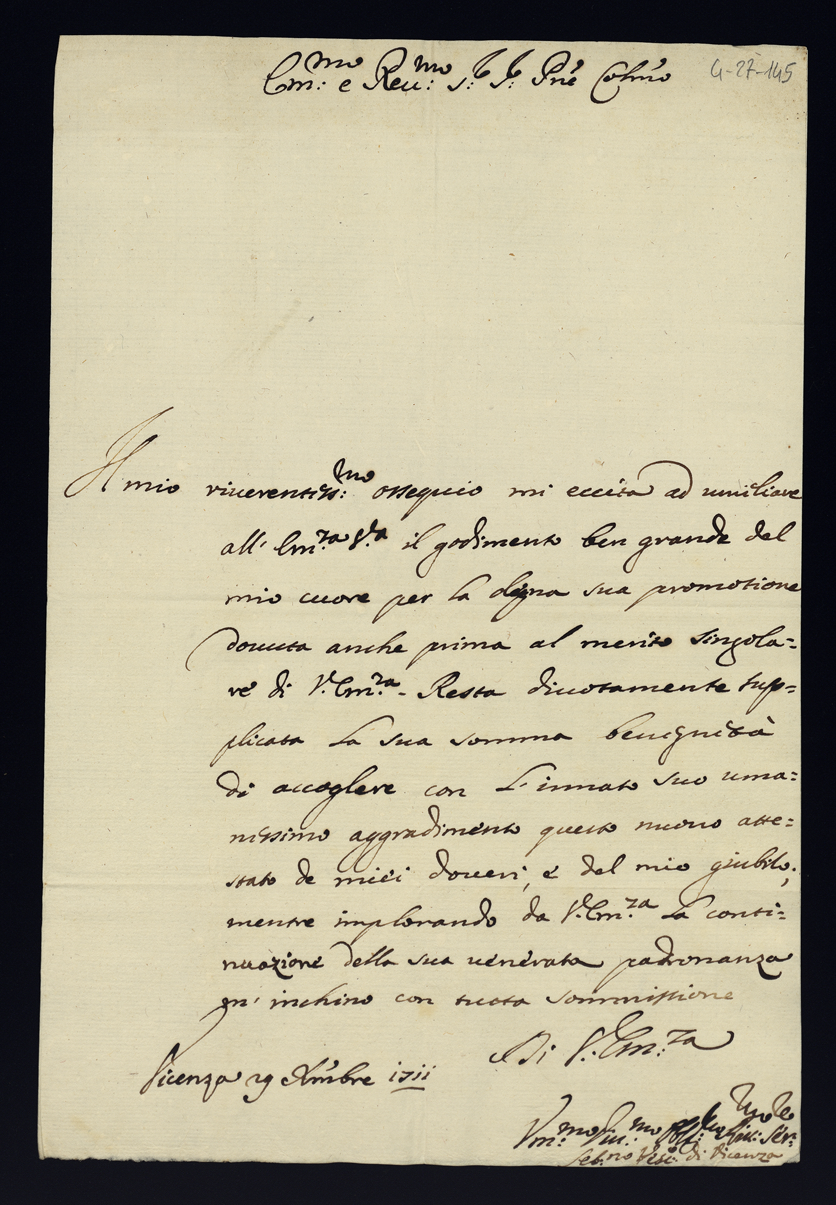 Em:mo e Reu:mo S:r S:r Pn̄e Col:mo
4-27-145
Il mio riuerentiss:mo ossequio mi eccita ad umiliare
all' Em:za V:a il godimento ben grande del
mio cuore per la degna sua promotione
douuta anche prima al merito singola=
re di V. Em:za. Resta diuotamente sup=
plicata la sua somma benignità
di accogliere con l'innato suo uma=
nissimo aggradimento questo nuouo atte=
stato de miei doueri, e del mio giubilo;
mentre implorando da V. Em:za la conti=
nuazione della sua uenerata padronanza
m'inchino con tutta sommissione
Di V. Em:za
Vicenza 29 Xmbre 1711
Vm:mo Diu:mo Ser:
Seb:no Vesc: di Vicenza